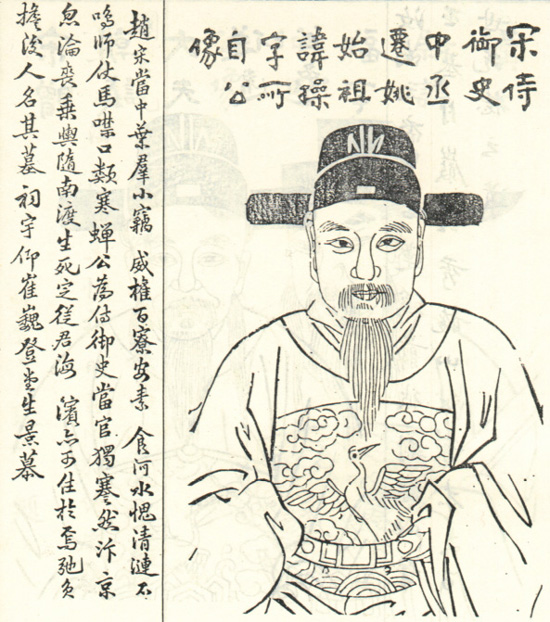 宋侍
御史
中丞
遷姚
始祖
諱操
字所
自公
像
趙宋當中葉羣小竊 威權百寮安素 食河水愧清漣不
鳴師仗馬噤口類寒蟬公為侍御史當官獨蹇然汴京
忽淪喪乘輿隨南渡生死定從君海 濱亦可住於焉弛負
擔後人名其墓 祠宇仰崔巍登堂生景慕